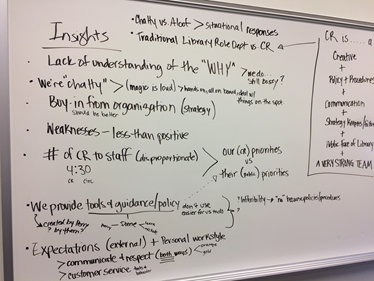 Insights
• Chatty vs. Aloof > situational responses
• Traditional Library Role Dept vs CR
• Lack of understanding of the "WHY" > we do...
still busy?
• We're "chatty" > (magic is loud) > hands on, all on board, deal w/
things on the spot
• Buy-in from organization (strategy)
should be better
• Weaknesses - less than positive
• # of CR to staff (disproportionate)
4:30
our (CR) priorities
vs
their priorities
• We provide tools & guidance/policy
don't use
easier for us
created by them?
• Expectations (external) + Personal workstyle
> communicate & respect (both ways)
> customer service
CR IS ... a
Creative
+
Policy + Procedures
+
Communication
+
Strategy
+
Public Face of Library
+
A VERY STRONG TEAM